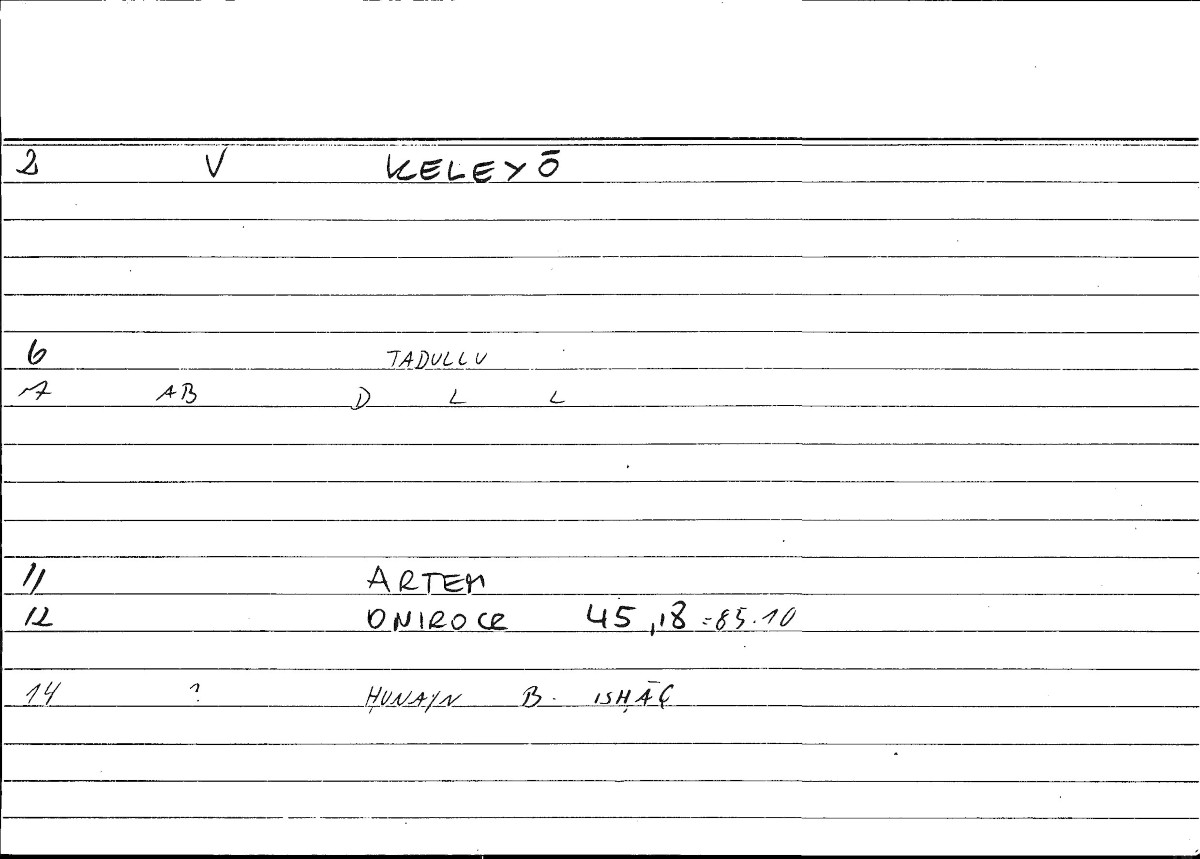 2 V KELEYŌ
6 TADULLU
7 AB D L L
11 ARTEM
12 ONIROCR 45,18 =85.10
14 ? ḤUNAYN B. ISḤĀQ